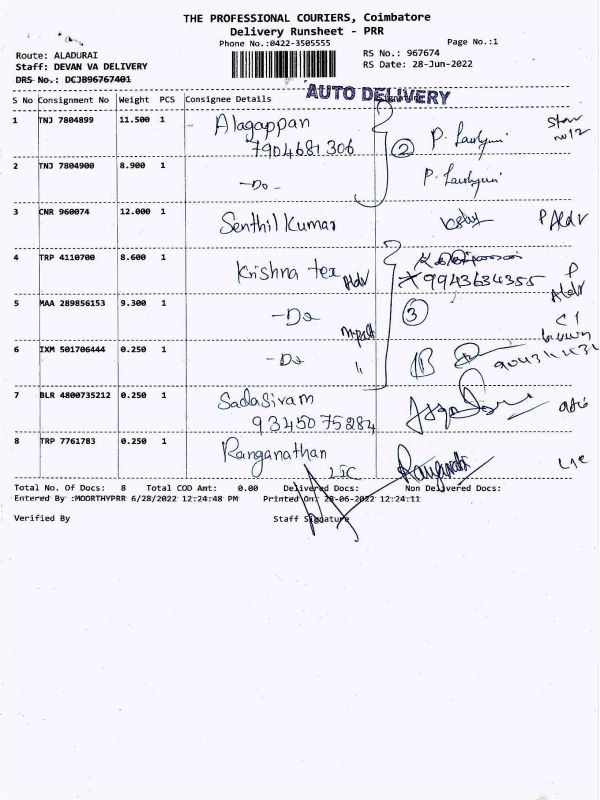 THE PROFESSIONAL COURIERS, Coimbatore
Delivery Runsheet - PRR
Phone No.:0422-3505555
Page No.:1
Route: ALADURAI
RS No.: 967674
Staff: DEVAN VA DELIVERY
RS Date: 28-Jun-2022
DRS No.: DCJB96767401
AUTO DELIVERY
S No Consignment No Weight PCS Consignee Details Signature
1 TNJ 7804899 11.500 1 Alagappan
7904681306 2
2 TNJ 7804900 8.900 1 -Do-
3 CNR 960074 12.000 1 Senthil Kumar
4 TRP 4110700 8.600 1 Krishna tex
9943634355
5 MAA 289856153 9.300 1 -Do 3
6 IXM 501706444 0.250 1 -Do "
7 BLR 4800735212 0.250 1 Sadasivam
9345075284
8 TRP 7761783 0.250 1 Ranganathan
LIC Ranganath
Total No. Of Docs: 8 Total COD Amt: 0.00 Delivered Docs: Non Delivered Docs:
Entered By :MOORTHYPRR 6/28/2022 12:24:48 PM Printed On: 28-06-2022 12:24:11
Verified By Staff Signature